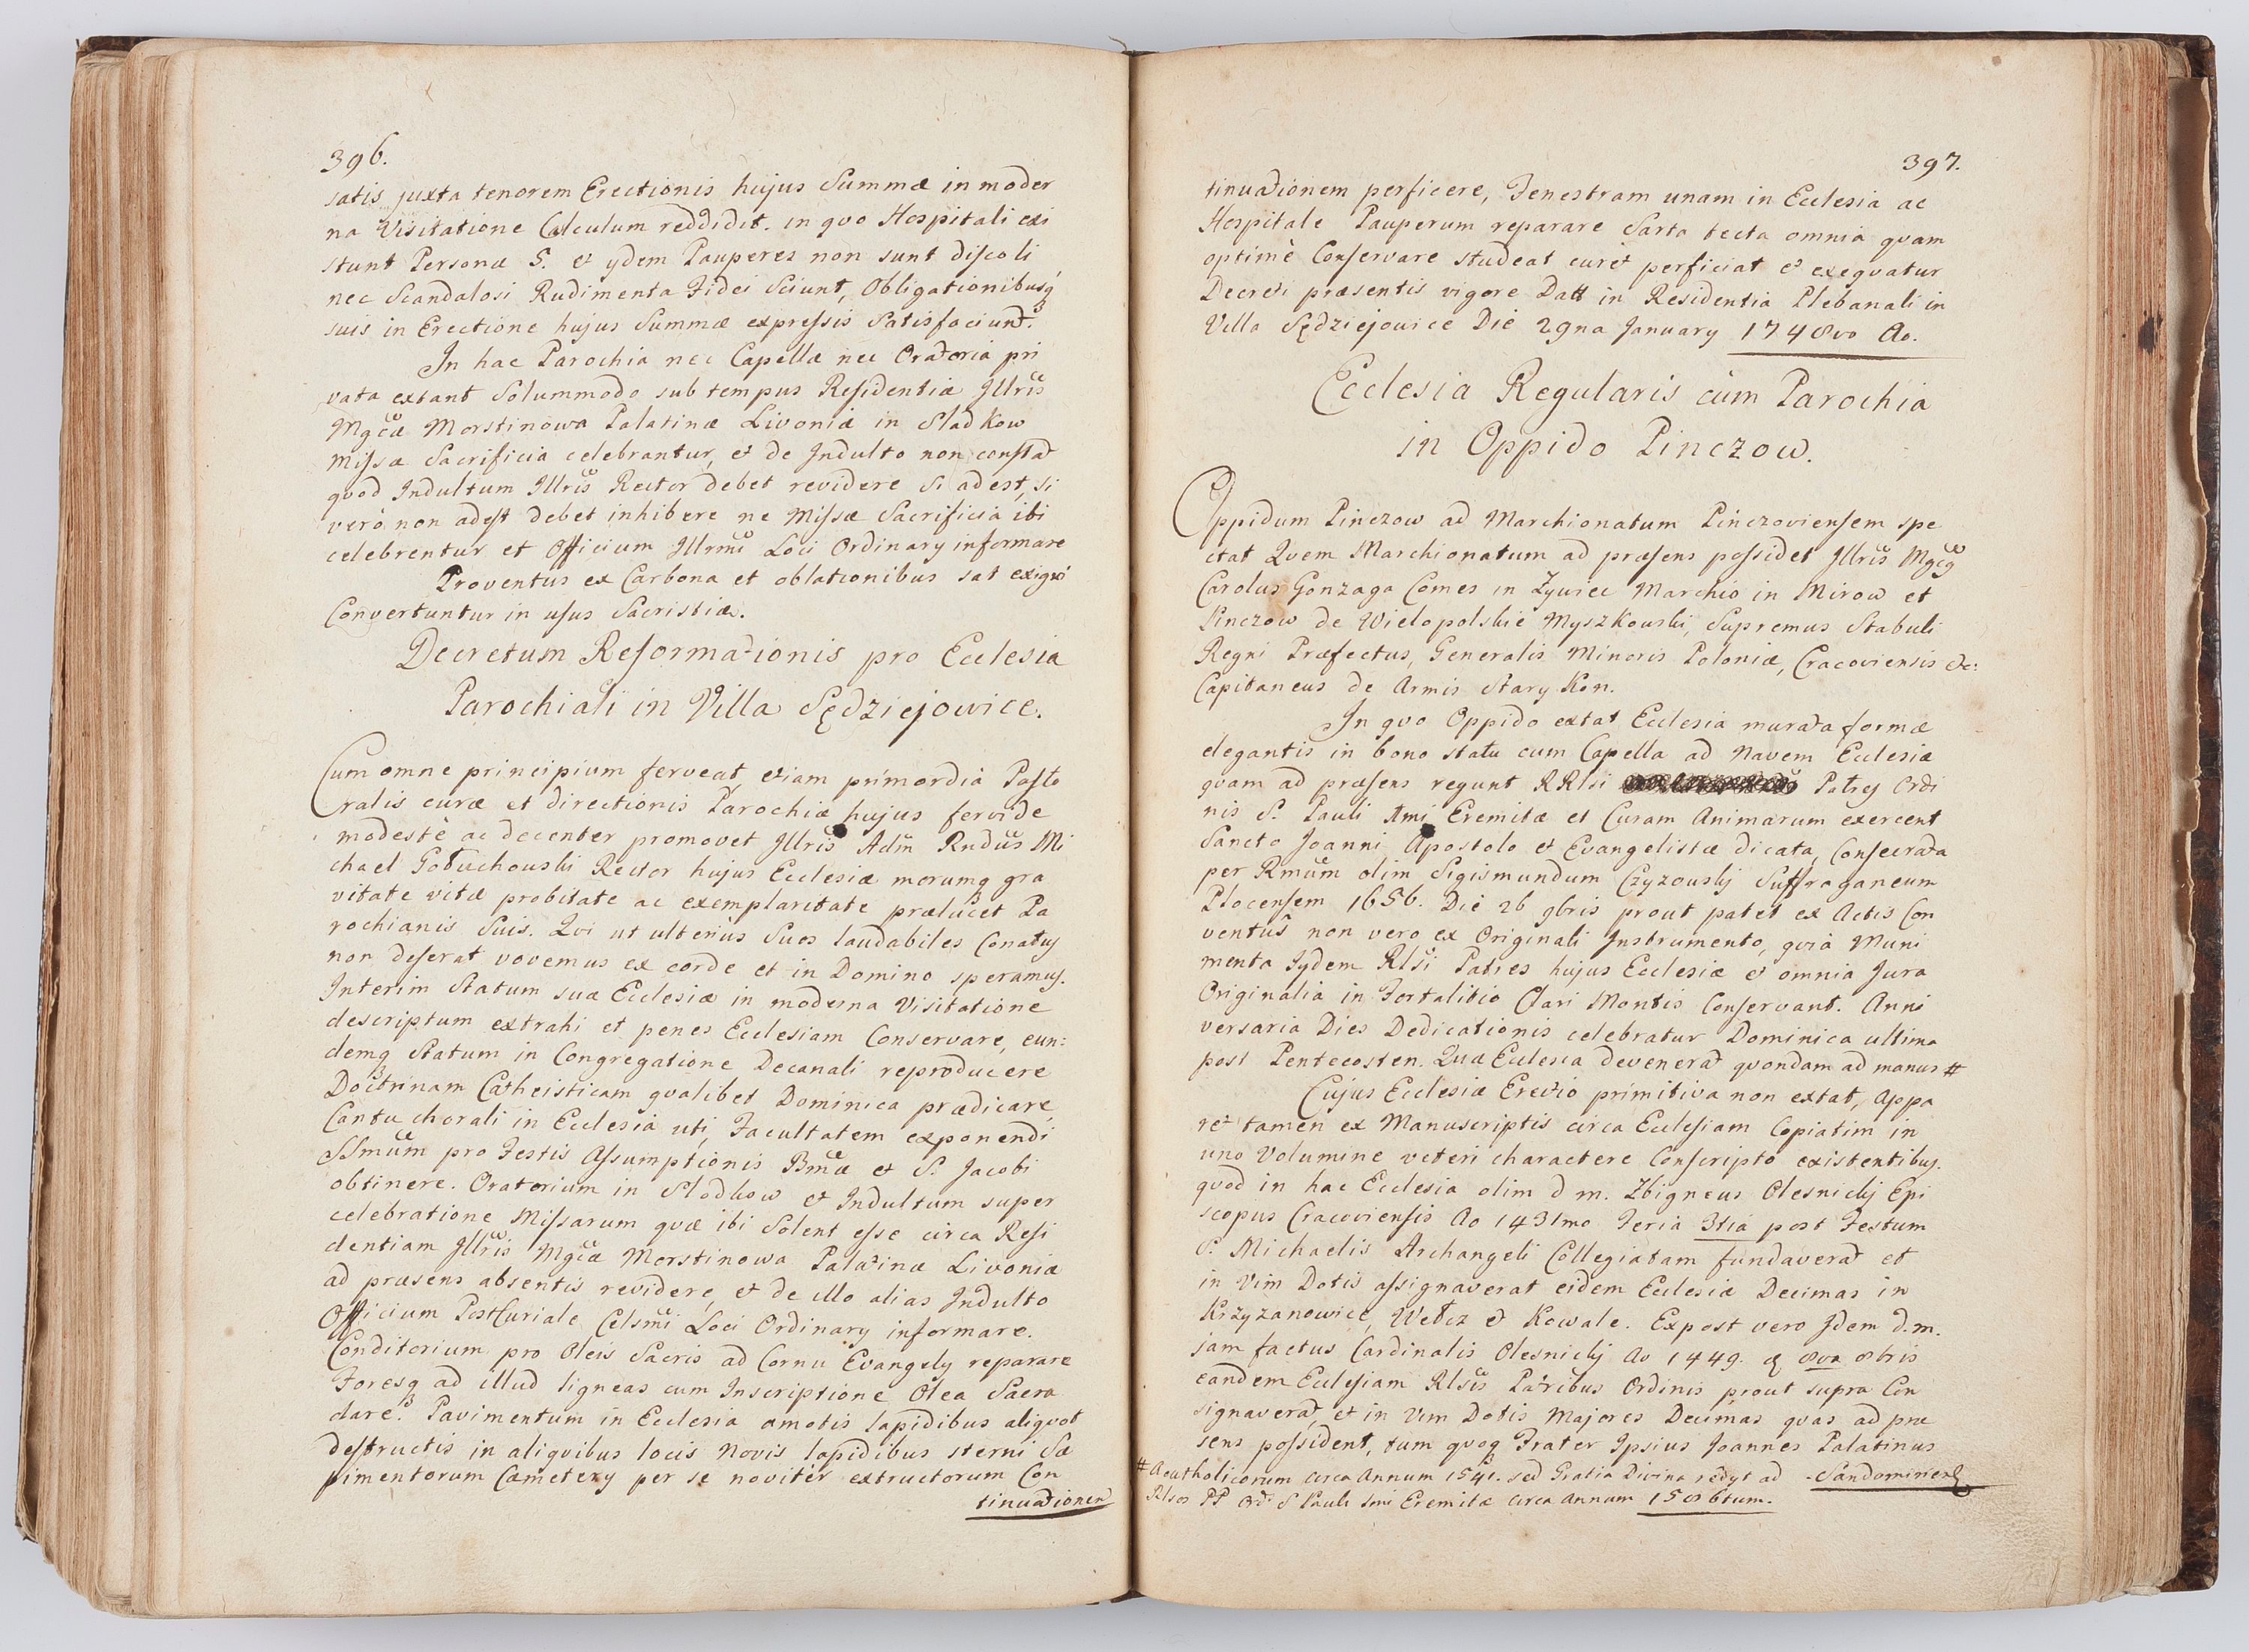 396.
satis juxta tenorem Erectionis hujus Summæ in moder
na Visitatione Calculum reddidit. in quo Hospitali exi
stunt Personæ 5. et ydem Pauperes non sunt discoli
nec Scandalosi Rudimenta Fidei Sciunt, Obligationibusq
suis in Erectione hujus Summæ expressis Satisfaciunt.
In hac Parochia nec Capellæ nec Oratoria pri
vata extant Solummodo sub tempus Residentiæ Illris
Mgcæ Morstinowa Palatinæ Livoniæ in Sladkow
Missæ Sacrificia celebrantur, et de Indulto non constat
quod Indultum Illris Rector debet revidere Si adest, si
verò non adest debet inhibere ne Missæ Sacrificia ibi
celebrentur et Officium Illrmi Loci Ordinary informare
Proventus ex Carbona et oblationibus sat exigui
Convertuntur in usus Sacristiæ.
Decretum Reformationis pro Ecclesia
Parochiali in Villa Sędziejowice.
Cum omne principium ferveat, etiam primordia Pasto
ralis curæ et directionis Parochiæ hujus fervide
modestè ac decenter promovet Illris Adm Rndus Mi
chael Gołuchouski Rector hujus Ecclesiæ morumq gra
vitate vitæ probitate ac exemplaritate prælucet Pa
rochianis Suis. Qui ut ulterius Suos laudabiles Conatus
non deserat vovemus ex corde et in Domino speramus.
Interim Statum suæ Ecclesiæ in moderna Visitatione
descriptum extrahi et penes Ecclesiam Conservare, eun:
demq Statum in Congregatione Decanali reproducere
Doctrinam Catheisticam qualibet Dominica prædicare,
Cantu chorali in Ecclesia uti, Facultatem exponendi
SSmum pro Festis Assumptionis Bmæ et S. Jacobi
obtinere. Oratorium in Slodkow et Indultum super
celebratione Missarum quæ ibi Solent esse circa Resi
dentiam Illris Mgcæ Morstinowa Palatinæ Livoniæ
ad præsens absentis revidere, et de illo alias Indulto
Officium PostCuriale Celsmi Loci Ordinary informare.
Conditorium pro Oleis Sacris ad Cornu Evangely reparare
Foresq ad illud ligneas cum Inscriptione Olea Sacra
dare. Pavimentum in Ecclesia amotis lapidibus aliquot
destructis in aliquibus locis Novis lapidibus sterni Sæ
pimentorum Cæmetery per se novitèr extructorum Con
tinuationem
397.
tinuationem perficere, Fenestram unam in Ecclesia ac
Hospitale Pauperum reparare Sarta tecta omnia quam
optimè Conservare studeat curet perficiat et exequatur
Decreti præsentis vigore Datt in Residentia Plebanali in
Villa Sędziejowice Die 29na January 1748vo Ao.
Ecclesia Regularis cum Parochia
in Oppido Pinczow.
Oppidum Pinczow ad Marchionatum Pinczoviensem spe
ctat Quem Marchionatum ad præsens possidet Illris Mgcg
Carolus Gonzaga Comes in Zywiec Marchio in Mirow et
Pinczow de Wielopolskie Myszkouski, Supremus Stabuli
Regni Præfectus, Generalis Minoris Poloniæ, Cracoviensis &c:
Capitaneus de Armis Stary Kon.
In quo Oppido extat Ecclesia murata formæ
elegantis in bono statu cum Capella ad Navem Ecclesiæ
quam ad præsens regunt RRlsi Patres Ordi
nis S. Pauli 1mi Eremitæ et Curam Animarum exercent
Sancto Joanni Apostolo et Evangelistæ dicata, Consecrata
per Rmum olim Sigismundum Czyzouskj Suffraganeum
Plocensem 1656. Die 26 9bris prout patet ex Actis Con
ventûs non vero ex Originali Instrumento, quia Muni
menta Iydem Rlsi Patres hujus Ecclesiæ et omnia Jura
Originalia in Fortalitio Clari Montis Conservant. Anni
versaria Dies Dedicationis celebratur Dominica ultima
post Pentecosten. Quæ Ecclesia devenerat quondam ad manus #
Cujus Ecclesiæ Erectio primitiva non extat, Appa
ret tamen ex Manuscriptis circa Ecclesiam Copiatim in
uno Volumine veteri charactere Conscripto existentibus.
quod in hac Ecclesia olim d m. Zbigneus Olesnickj Epi
scopus Cracoviensis Ao 1431mo Feria 3tia post Festum
S. Michaelis Archangeli Collegiatam fundaverat et
in Vim Dotis assignaverat eidem Ecclesiæ Decimas in
Krzyzanowice, Wełcz et Kowale. Expost vero Idem d.m.
jam factus Cardinalis Olesnickj Ao 1449. 8va 8bris
eandem Ecclesiam Rlsis Patribus Ordinis prout supra Con
signaverat, et in Vim Dotis Majores Decimas quas ad præ
sens possident, tum quoq Frater Ipsius Joannes Palatinus
Sandomirien
# Acatholicorum circa Annum 1541. sed Gratia Divina redyt ad
Rlsos PP Ord S Pauli 1mi Eremitæ circa Annum 1586tum.